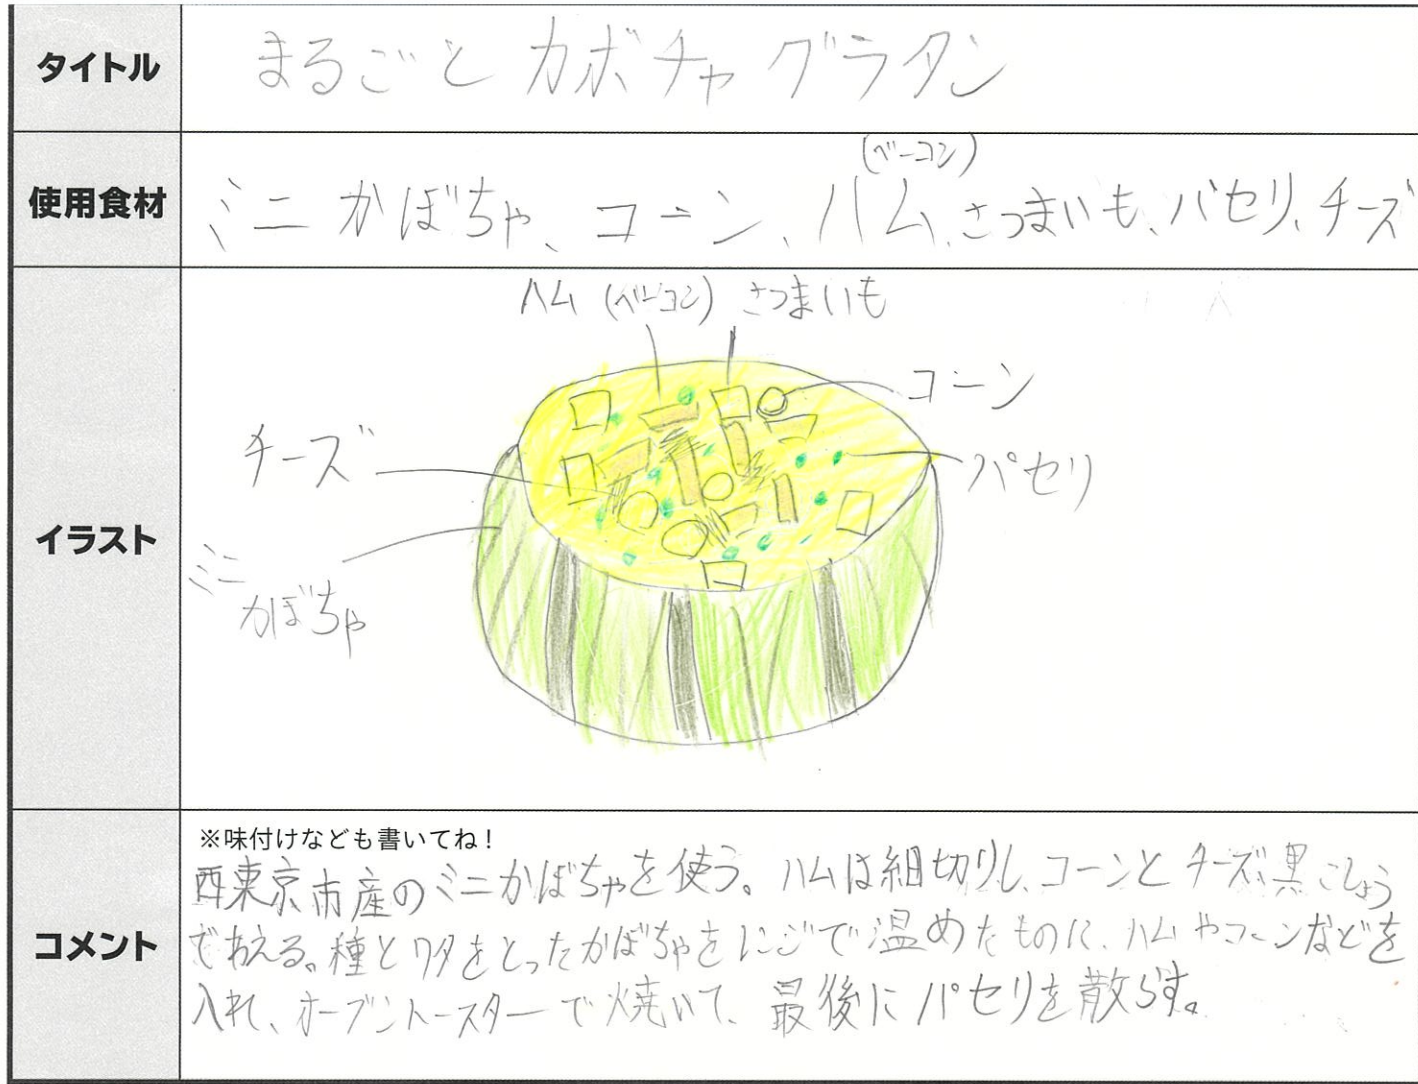 タイトル
まるごとカボチャグラタン
使用食材
(ベーコン)
ミニかぼちゃ、コーン、ハム、さつまいも、パセリ、チーズ
イラスト
ハム(ベーコン) さつまいも
コーン
チーズ
パセリ
ミニ
かぼちゃ
コメント
※味付けなども書いてね!
西東京市産のミニかぼちゃを使う。ハムは細切りし、コーンとチーズ、黒こしょう
であえる。種とワタをとったかぼちゃを で温めたものに、ハムやコーンなどを
入れ、オーブントースターで焼いて、最後にパセリを散らす。